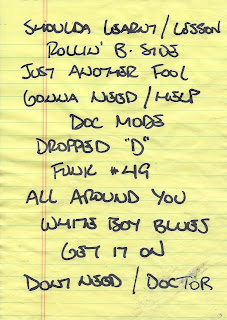 SHOULDA LEARNT / LESSON
ROLLIN' B-SIDE
JUST ANOTHER FOOL
GONNA NEED / HELP
DOC MODE
DROPPED "D"
FUNK #49
ALL AROUND YOU
WHITE BOY BLUES
GET IT ON
DON'T NEED / DOCTOR